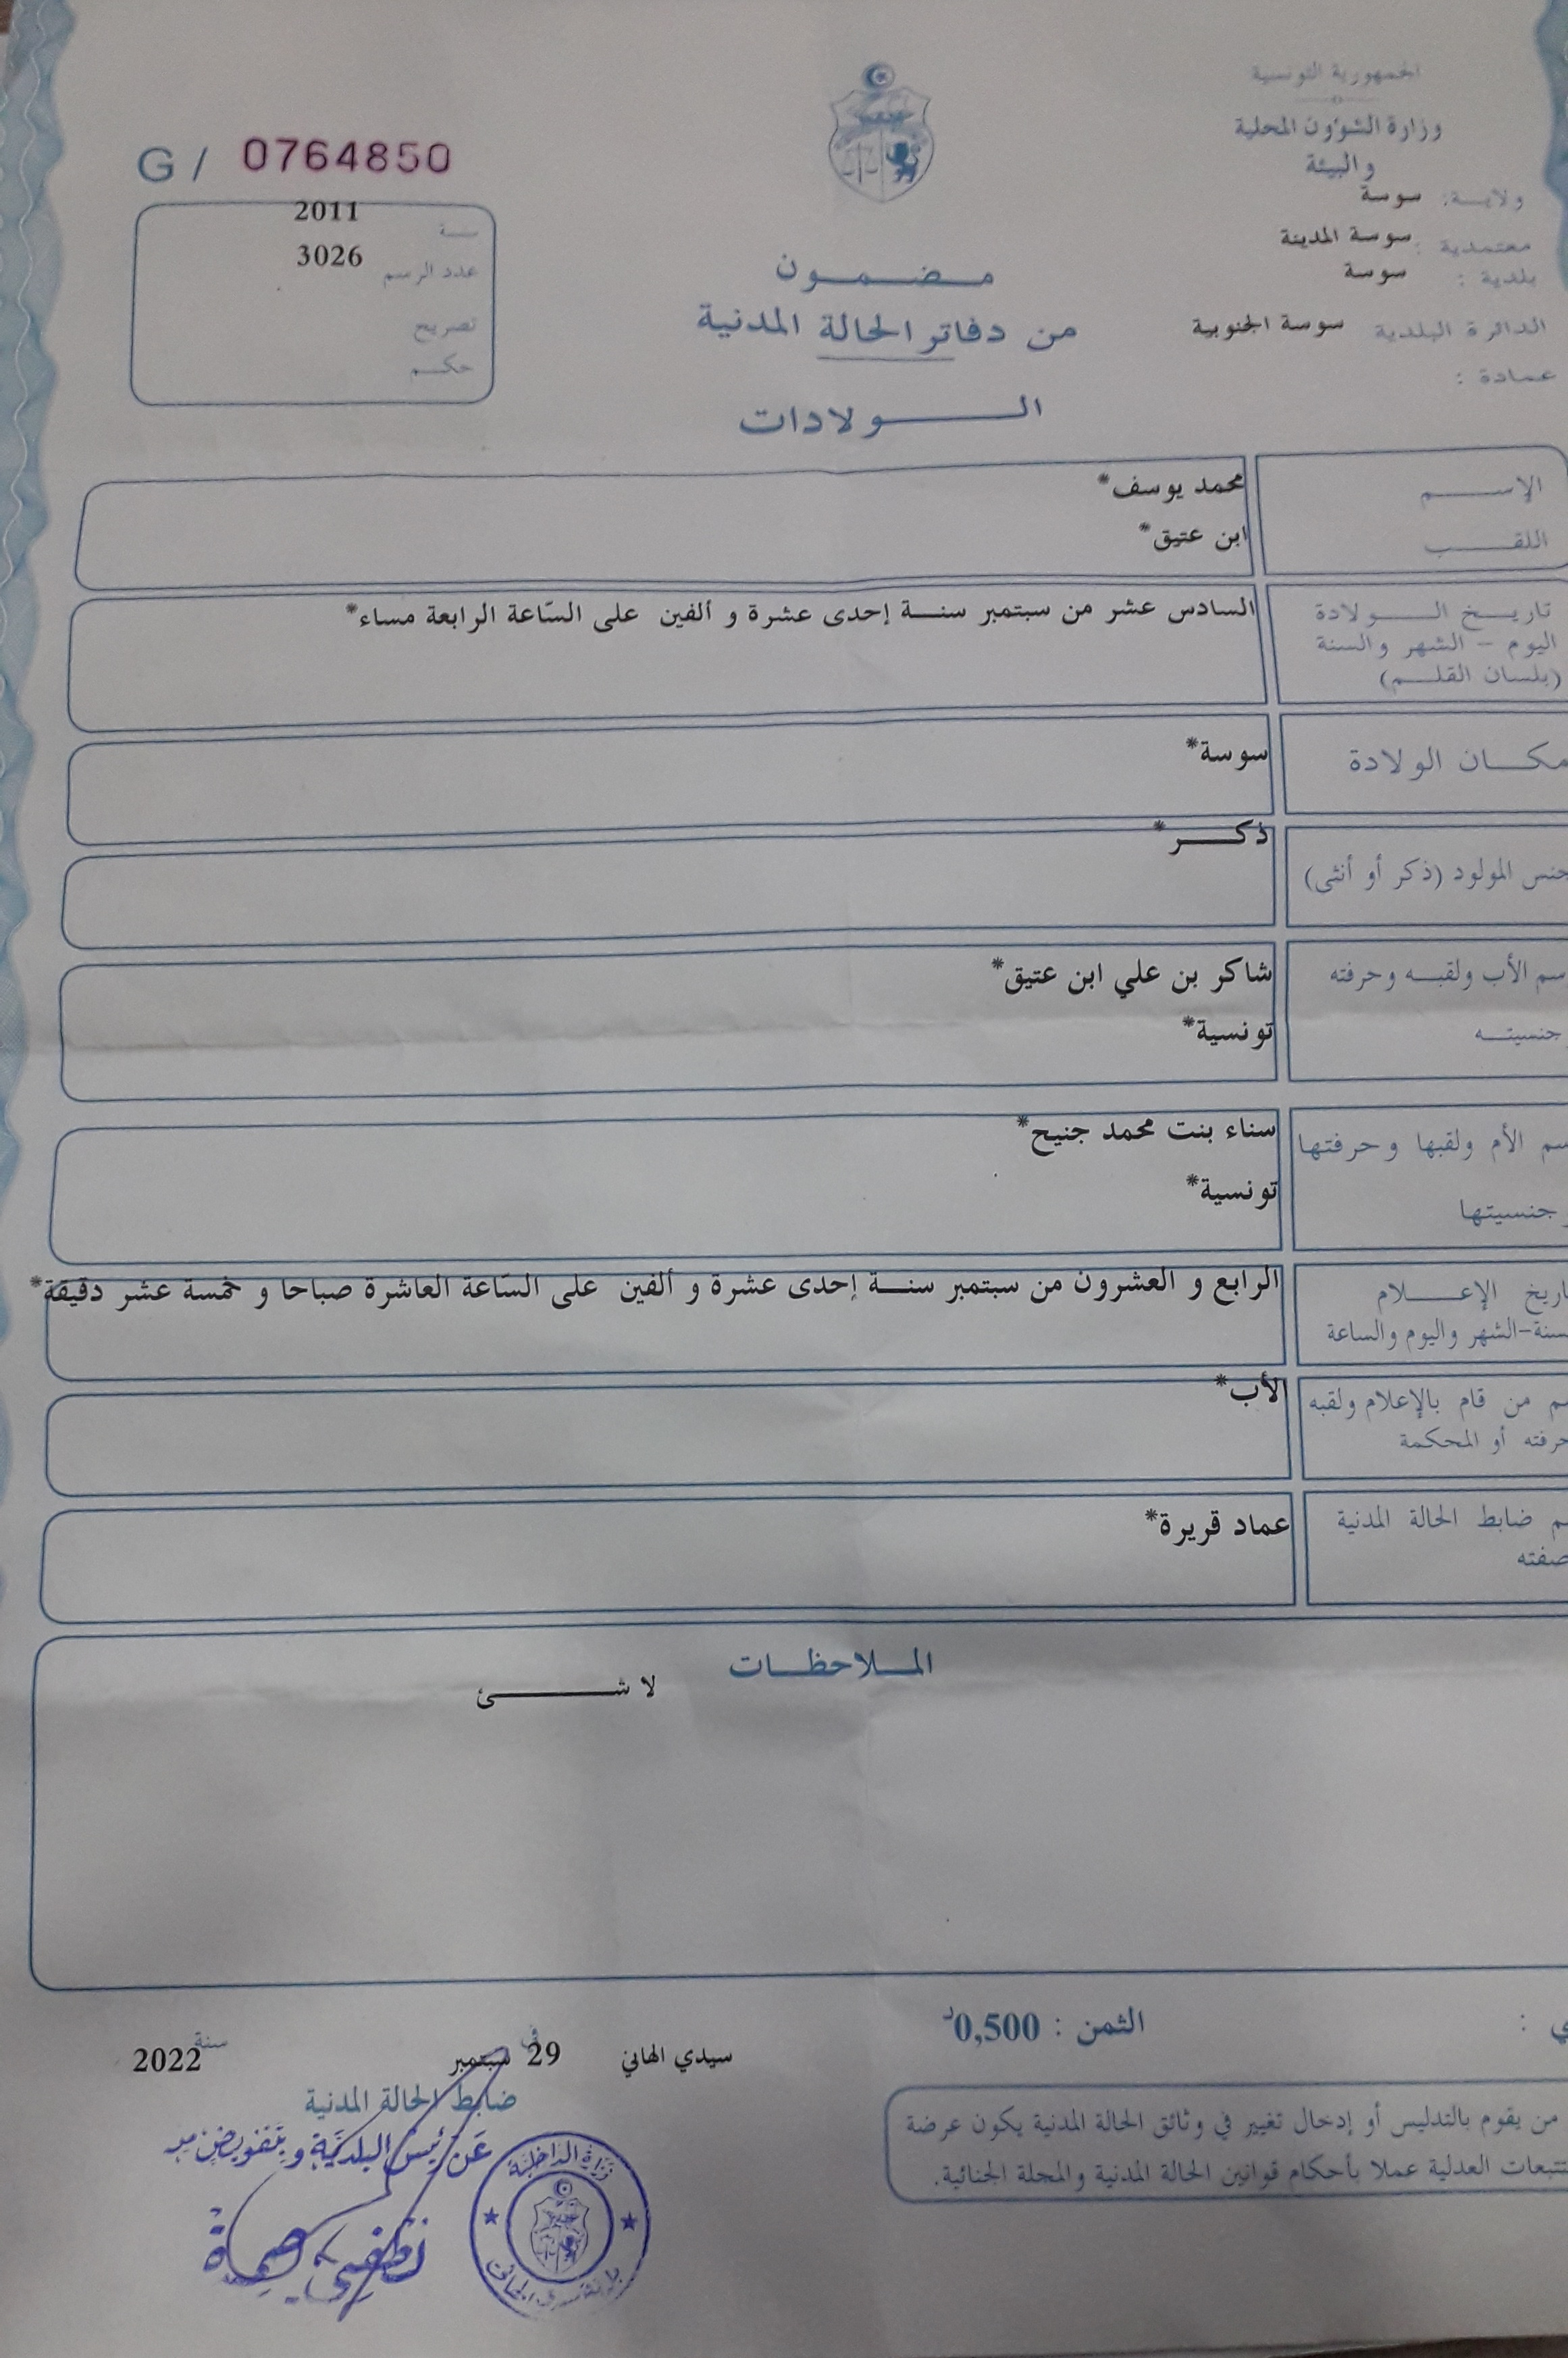 الجمهورية التونسية
وزارة الشؤون المحلية
والبيئة
ولاية: سوسة
معتمدية : سوسة المدينة
بلدية : سوسة
الدائرة البلدية سوسة الجنوبية
عمادة :
مضمون
من دفاتر الحالة المدنية
الولادات
G / 0764850
سنة 2011
عدد الرسم 3026
تصريح
حكم
الإسم محمد يوسف*
اللقب ابن عتيق*
تاريخ الولادة السادس عشر من سبتمبر سنة إحدى عشرة و ألفين على السّاعة الرابعة مساء*
اليوم - الشهر والسنة
(بلسان القلم)
مكان الولادة سوسة*
جنس المولود (ذكر أو أنثى) ذكر*
سم الأب ولقبه وحرفته شاكر بن علي ابن عتيق*
وجنسيته تونسية*
سم الأم ولقبها وحرفتها سناء بنت محمد جنيح*
وجنسيتها تونسية*
اريخ الإعلام الرابع و العشرون من سبتمبر سنة إحدى عشرة و ألفين على السّاعة العاشرة صباحا و خمسة عشر دقيقة*
سنة-الشهر واليوم والساعة
سم من قام بالإعلام ولقبه الأب*
حرفته أو المحكمة
سم ضابط الحالة المدنية عماد قريرة*
صفته
الملاحظات
لا شئ
ي :
الثمن : 0,500د
سيدي الهاني في 29 سبتمبر سنة 2022
ضابط الحالة المدنية
عن رئيس البلدية وبتفويض منه
وزارة الداخلية
من يقوم بالتدليس أو إدخال تغيير في وثائق الحالة المدنية يكون عرضة
للتتبعات العدلية عملا بأحكام قوانين الحالة المدنية والمجلة الجنائية.